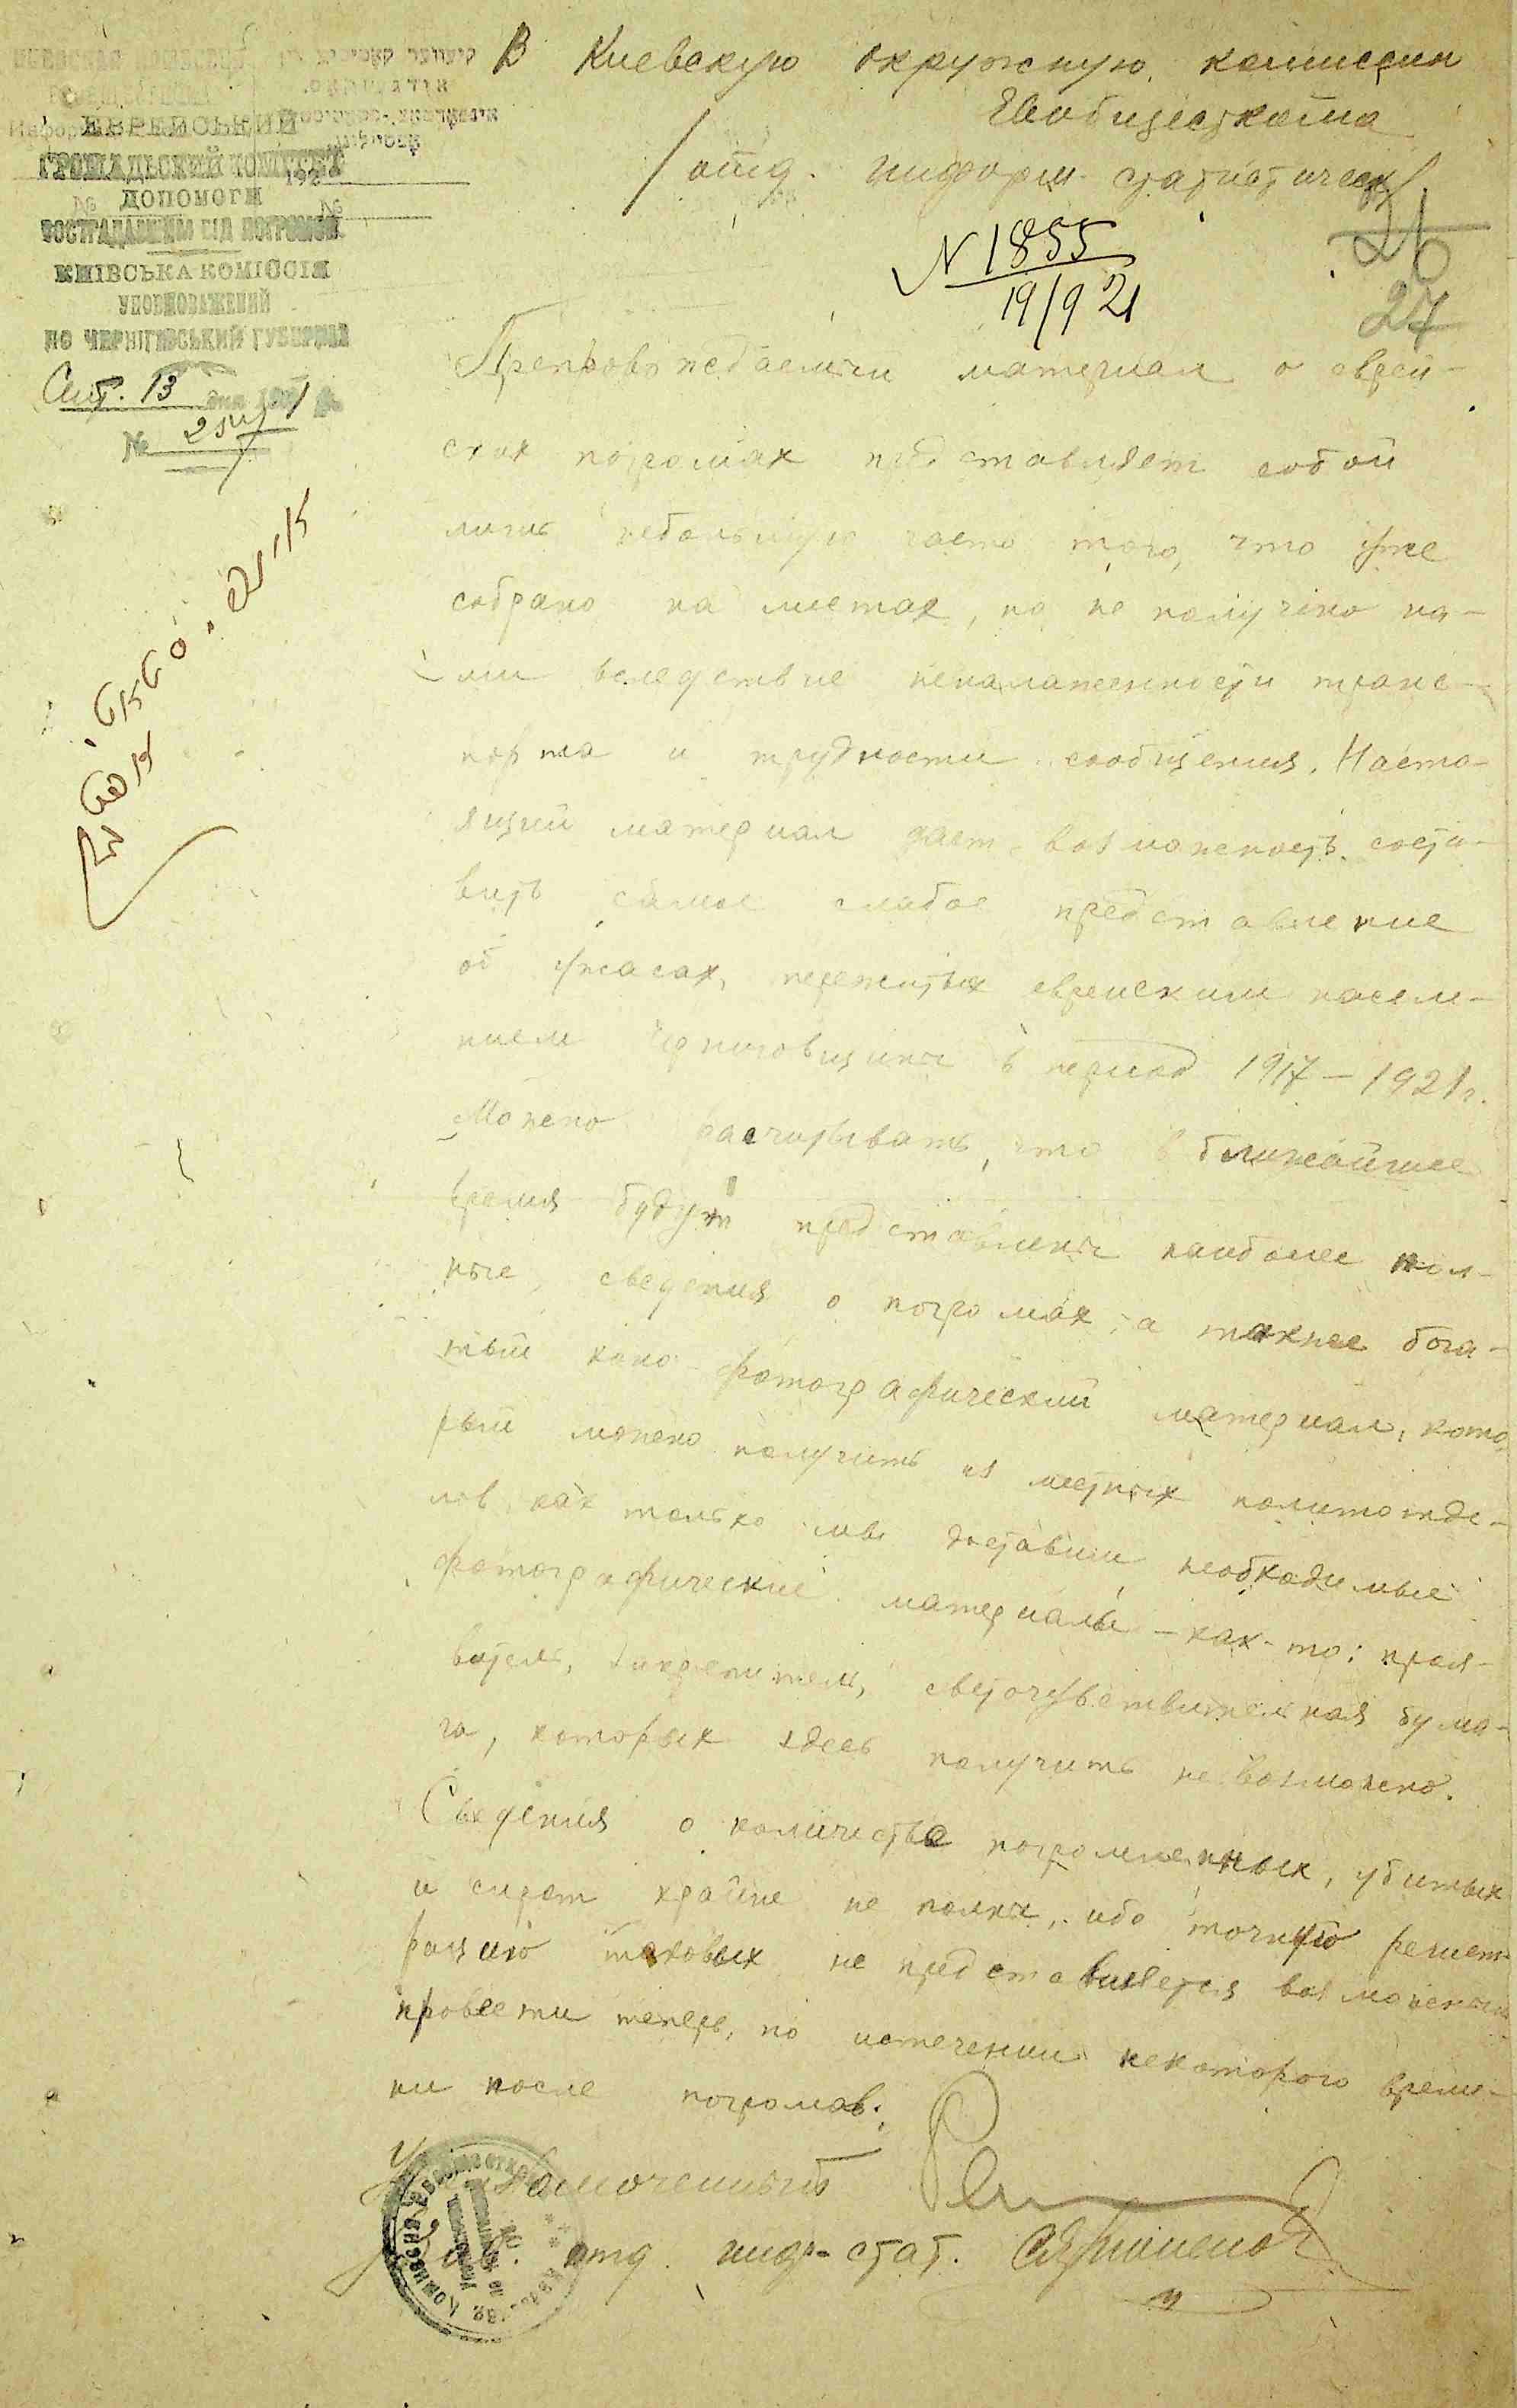 В Киевскую окружную комиссию
Евобщесткома
/отд. информ. статистическ/.
ЕВРЕЙСЬКИЙ
ГРОМАДСЬКИЙ КОМІТЕТ
ДОПОМОГИ
ПОСТРАДАВШИМ ВІД ПОГРОМОВ
КИІВСЬКА КОМІССІЯ
УПОВНОВАЖЕНИЙ
ПО ЧЕРНІГІВСЬКИЙ ГУБЕРНІИ
Сент. 13 дня 1921 р.
№
N 1855
19/9 21
26
27
Препровождаемый материал о еврей-
ских погромах представляет собой
лишь небольшую часть того, что уже
собрано на местах, но не получено на-
ми вследствие неналаженности транс-
порта и трудности сообщения. Насто-
ящий материал дает возможность соста-
вить самое слабое представление
об ужасах, пережитых еврейским населе-
нием Черниговщины в период 1917–1921 г.
Можно расчитывать, что в ближайшее
время будут представлены наиболее пол-
ные сведения о погромах, а также бога-
тый кино-фотографический материал, кото-
рый можно получить из местных политотде-
лов, как только мы доставим необходимые
фотографические материалы – как-то: прояв-
витель, закрепитель, светочувствительная бума-
га, которых здесь получить невозможно.
Сведения о количестве погромленных, убитых
и сирот крайне не полны, ибо точную регист-
рацию таковых не представляется возможным
провести теперь, по истечении некоторого време-
ни после погромов.
Уполномоченный
Зав. отд. инф-стат.